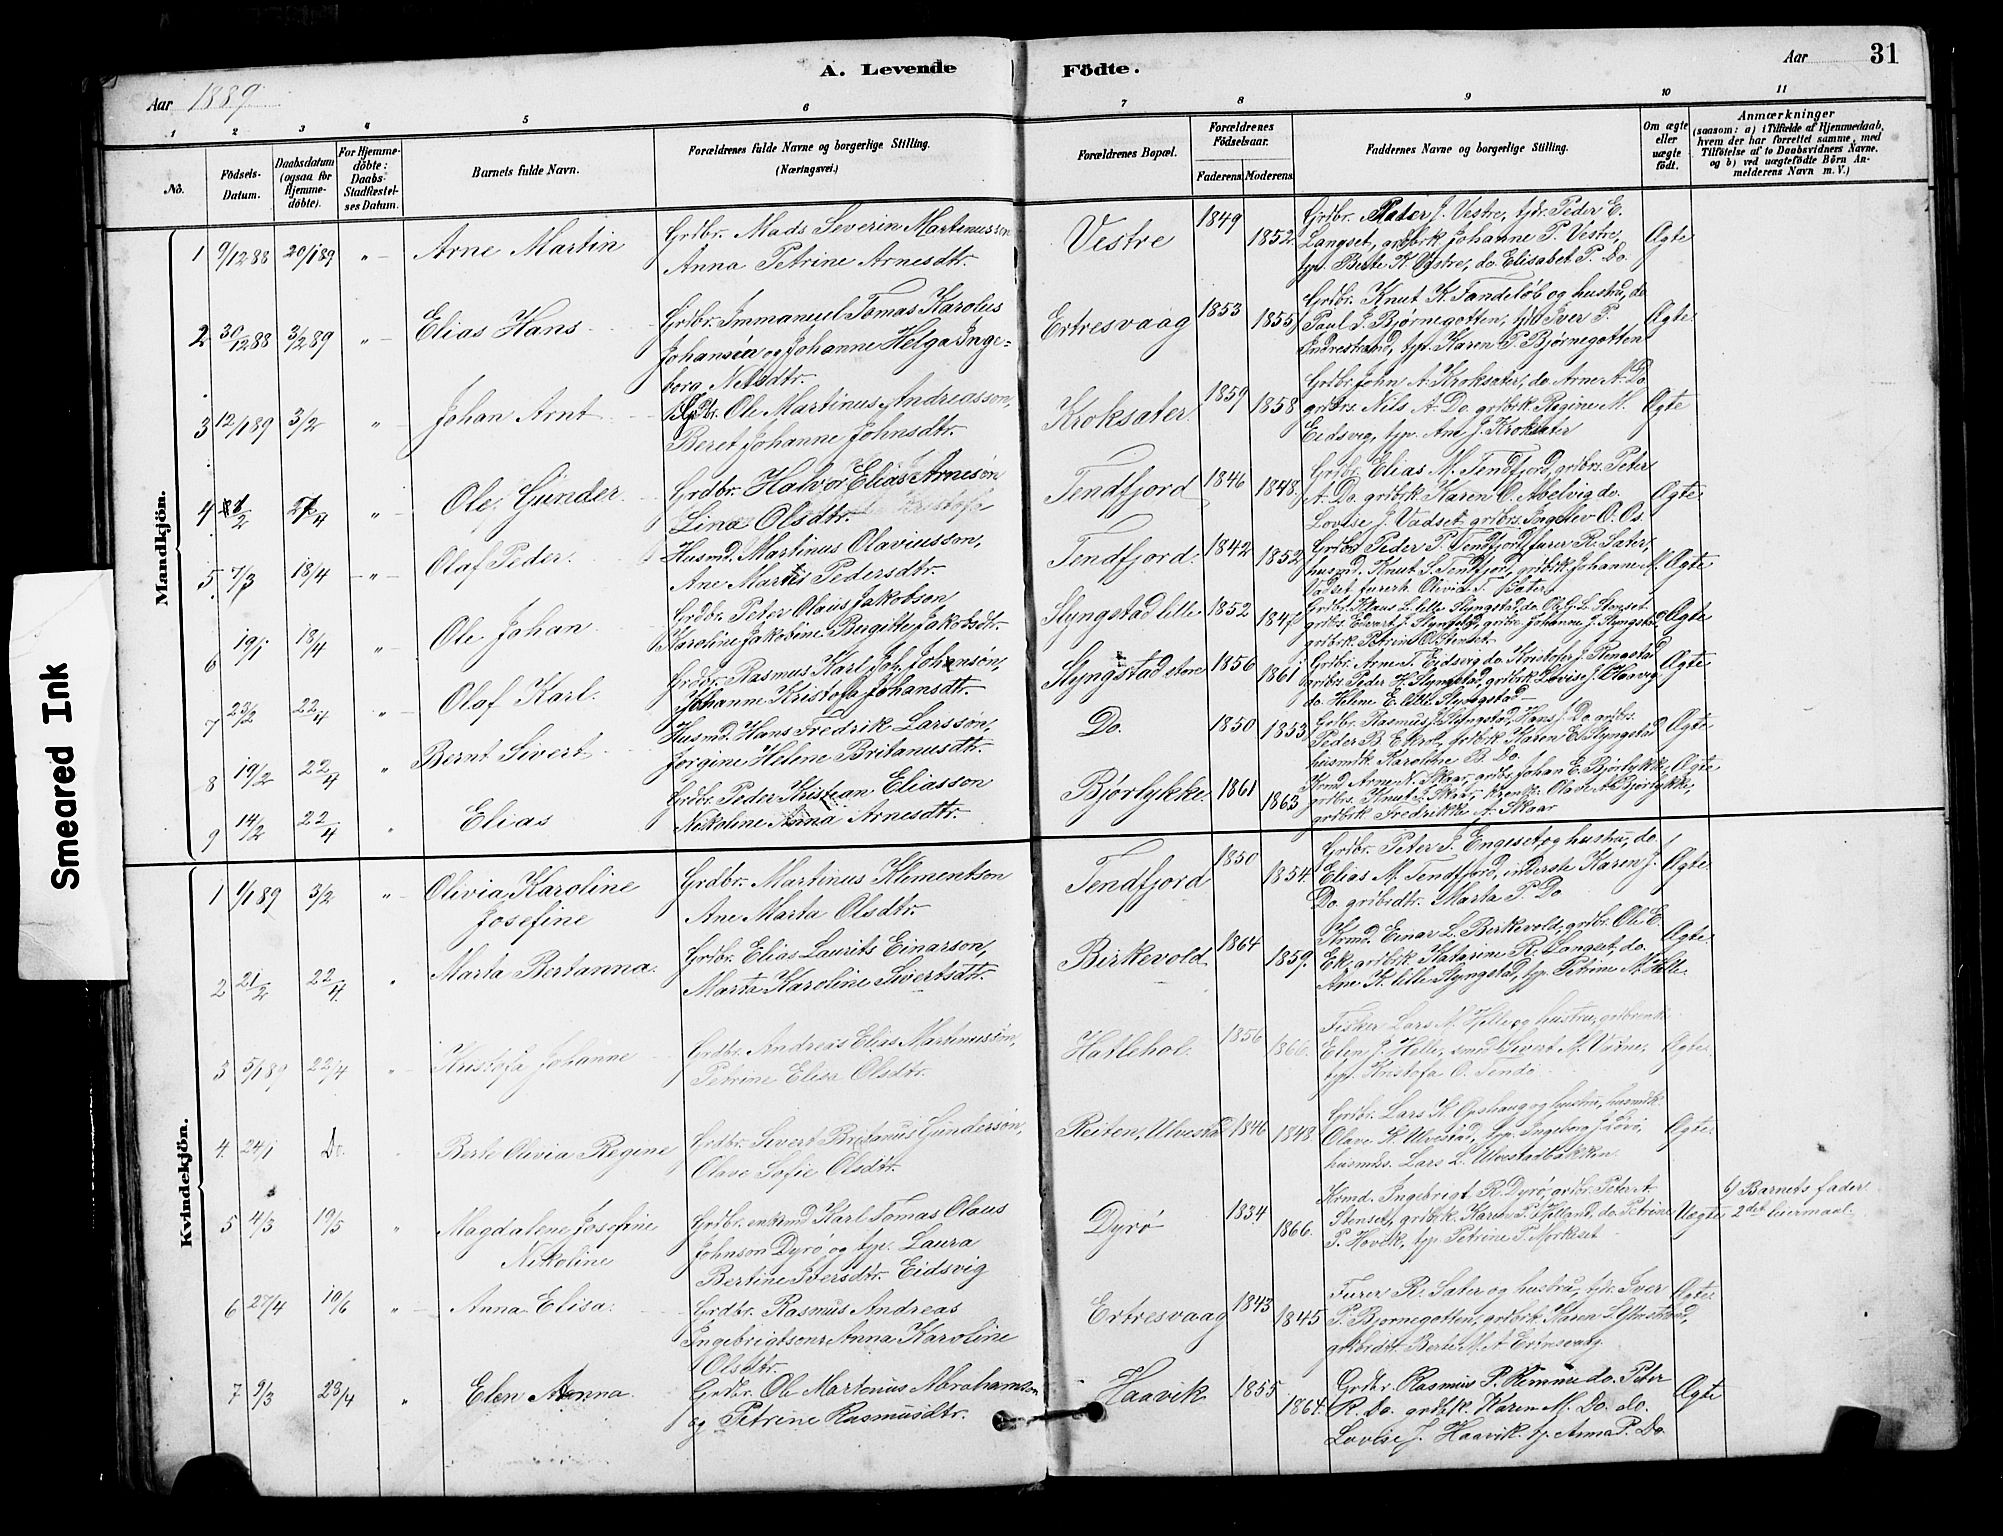 A. Levende Födte.
Aar 1889.
Aar 31
1 2 3 4 5 6 7 8 9 10 11
No.
Födsels-Datum.
Daabsdatum (ogsaa for Hjemmedöbte).
For Hjemmedöbte: Daabs-Stadfæstelses Datum.
Barnets fulde Navn.
Forældrenes fulde Navne og borgerlige Stilling.
(Næringsvei.)
Forældrenes Bopæl.
Forældrenes Födselsaar.
Faderens Moderens
Faddernes Navne og borgerlige Stilling.
Om ægte eller uægte födt.
Anmærkninger
(saasom: a) i Tilfælde af Hjemmedaab, hvem der har forrettet samme, med Tilföielse af to Daabsvidners Navne, og b) ved uægtefödte Börn Anmelderens Navn m. V.)
Smeared Ink
Mandkjön.
1 9/12 88 20/1 89 " Arne Martin Grdbr. Mads Severin Martinusson Vestre 1849 1852 Grdbr. Peter J. Vestre, tjdr. Peder E. Ægte
Anna Petrine Arnesdtr. Langset, grdbrk Johanne P. Vestre,
typ. Berte K Vestre, do. Elisabet P. Do.
2 30/12 88 3/2 89 " Elias Hans Grdbr. Immanuel Tomas Karolus Ertresvaag 1853 1855 Grdbr. Knut K. Tandeløb og hustru, do Ægte
Johansen og Johanne Helga Inge= Paul J. Bjørnegotten, tjdr Iver P.
borg Nelsdtr. Indrestrand, typ. Karen P. Bjørnegotten
3 12/1 89 3/2 " Johan Arnt Ole Martinus Andreasson, Kroksater 1859 1858 Grdbr. John A. Kroksater, do. Arne A. Do Ægte
Beret Johanne Johnsdtr. grdbrs. Nils A. Do. grdbrk. Regine M.
Eidsvig, typ. Ane J. Kroksater
4 Ole Gunder Grdbr. Halvor Elias Arnesøn Tendfjord 1846 1848 Grdbr. Elias M. Tendfjord, grdbrs. Peter Ægte
Line Olsdtr. A. Do. grdbrk. Karen O. Abelvig do.
Lovise J. Vadset grdbrs. O. Os.
5 7/3 18/4 " Olaf Peder. Husmd. Martinus Olaviusson, Tendfjord 1842 1852 Grdbr Peder P. Tendfjord, furer R. Sater, Ægte
Ane Martis Pedersdtr. husmd. Knut S. Tendfjord, grdbrk Johanne M.
Vadset furerk Olivia T. Sater
6 19/1 18/4 " Ole Johan Grdbr. Peter Olaus Jakobson Slyngstad lille 1852 Grdbr. Hans L. lille Slyngstad, do. Ole G. L. Stenset Ægte
Karoline Jakobine Bergitte Jakobsdtr. Slyngstad, Johanne J. Slyngstad
grdbrk. Petrine O. Stenset
7 23/2 22/4 " Olaf Karl. Grdbr. Rasmus Karl Joh. Johansøn, Slyngstad store 1856 1861 Grdbr. Arne T. Eidsvig do. Kristofer J. Ringstad Ægte
Johanne Kristofa Johansdtr. grdbrs Peder H. Slyngstad, grdbrk. Lovise J. Haavig
do. Helene E. lille Slyngstad
8 19/2 22/4 " Bernt Sivert Husmd. Hans Fredrik Larssøn, Do. 1850 1853 Grdbr. Rasmus J. Slyngstad, Hans J. Do. grdbrs. Ægte
Jorgine Helene Britanusdtr. Peder B. Ekrol, grdbrk Karen E. Slyngstad
husmdk Karoline B. Do.
9 14/2 22/4 " Elias Grdbr. Peder Kristian Eliasson Bjørlykke 1861 1863 Krmd Arne N. Skaar, grdbs Johan E. Bjørlykke, Ægte
Nikoline Anna Arnesdtr. grdbrs. Knut S. Skaar, Olave A. Bjørlykke,
grdbrk Fredrikke A. Skaar
Kvindekjön.
1 1/1 89 3/2 " Olivia Karoline Josefine Grdbr. Martinus Klementson Tendfjord 1850 1854 Grdbr. Peter J. Engeset og hustru, do. Ægte
Ane Marta Olsdtr. Elias M. Tendfjord, inderste Karen J.
Do. grdbrdtr. Marta P. Do
2 21/2 22/4 " Marta Bertanna. Grdbr. Elias Laurits Einarson, Birkevold 1864 1859 Krmd. Einar L. Birkevold, grdbr. Ole E. Ægte
Marta Karoline Sivertsdtr. Ek, grdbrk. Katarine R. Langset, do.
Ane K. lille Slyngstad, typ. Petrine M. Helle
3 5/1 89 22/4 " Kristofa Johanne Grdbr. Andreas Elias Martinussøn, Hatlehol 1856 1866 Fisker Lars M. Helle og hustru, Ægte
Petrine Elisa Olsdtr. Elen J. Helle, smed Sivert M.
typ. Kristofa O. Tendø
4. 24/1 Do. Berte Olivia Regine Grdbr. Sivert Britanus Gundersøn, Reiten, Ulvestad 1846 1848 Grdbr. Lars K Opshaug og hustru, husmdk Ægte
Olave Sofie Olsdtr. Olave K. Ulvestad, typ. Ingeborg J.
husmds. Lars L. Ulvestadbakken.
5 4/3 19/5 " Magdalene Josefine Nikoline Grdbr. enkmd Karl Tomas Olaus Dyrø 1834 1866 Krmd. Ingebrigt R. Dyrø, grdbr. Peter A. Uægte b) Barnets fader
Johnson Dyrø og typ. Laura Stenset, grdbrk. Karen P. Helland, do. Petrine 2det leiermaal.
Bertine Iversdtr. Eidsvig P. Hovek, typ Petrine P. Mørkeset
6 27/4 10/6 " Anna Elisa. Grdbr. Rasmus Andreas Ertresvaag 1843 1845 Furer R. Sater og hustru, tjdr. Iver Ægte
Ingebrigtson Anna Karoline P. Bjørnegotten, grdbrk. Karen S. Ulvestad,
Olsdtr. grdbrdtr. Berte M. A Ertresvaag.
7 9/3 23/4 " Elen Anna. Grdbr. Ole Martinus Abrahamson Haavik 1855 1864 Grdbr. Rasmus P. Rimme do. Peter Ægte
og Petrine Rasmusdtr. R. Do. grdbk. Karen M. Do. do.
Lovise J. Haavik. tp. Anna P. Do.